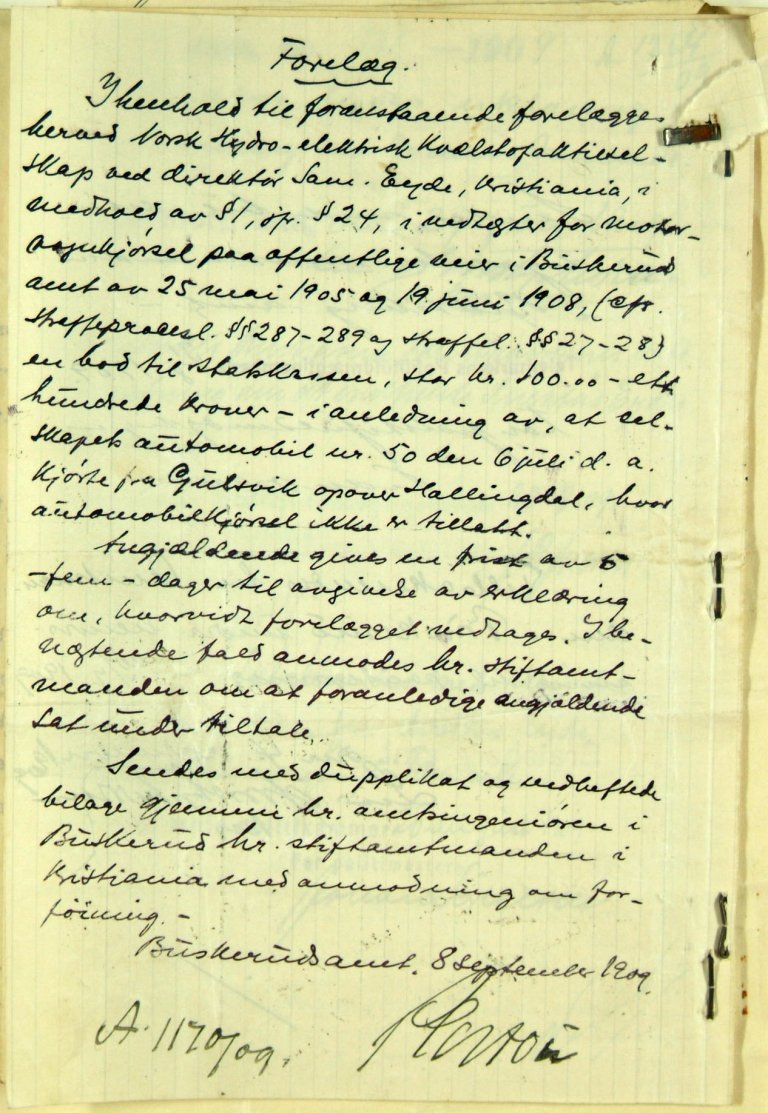 Forelæg.
I henhold til foranstaaende forelægges
herved Norsk Hydro-elektrisk Kvælstofaktiesel-
skap ved direktör Sam. Eyde, Kristiania, i
medhold av § 1, jfr. § 24, i vedtægter for motor-
vognkjørsel paa offentlige veier i Buskerud
amt av 25 mai 1905 og 19 juni 1908, (cfr.
straffeprocesl. §§ 287-289 og straffel. §§ 27-28)
en bod til statskassen, stor kr. 100.00 - ett
hundrede kroner - i anledning av, at sel-
skapets automobil nr. 50 den 6 juli d. a.
kjørte fra Gulsvik opover Hallingdal, hvor
automobilkjørsel ikke er tillatt.
Angjældende gives en frist av 5
-fem- dager til avgivelse av erklæring
om, hvorvidt forelægget vedtages. I be-
nægtende fald anmodes hr. stiftamt-
manden om at foranledige angjældende
sat under tiltale.
Sendes med dupplikat og vedheftede
bilage gjennem hr. amtsingeniören i
Buskerud hr. stiftamtmanden i
Kristiania med anmodning om for-
föining. -
Buskeruds amt, 8 september 1909.
A. 1170/09.